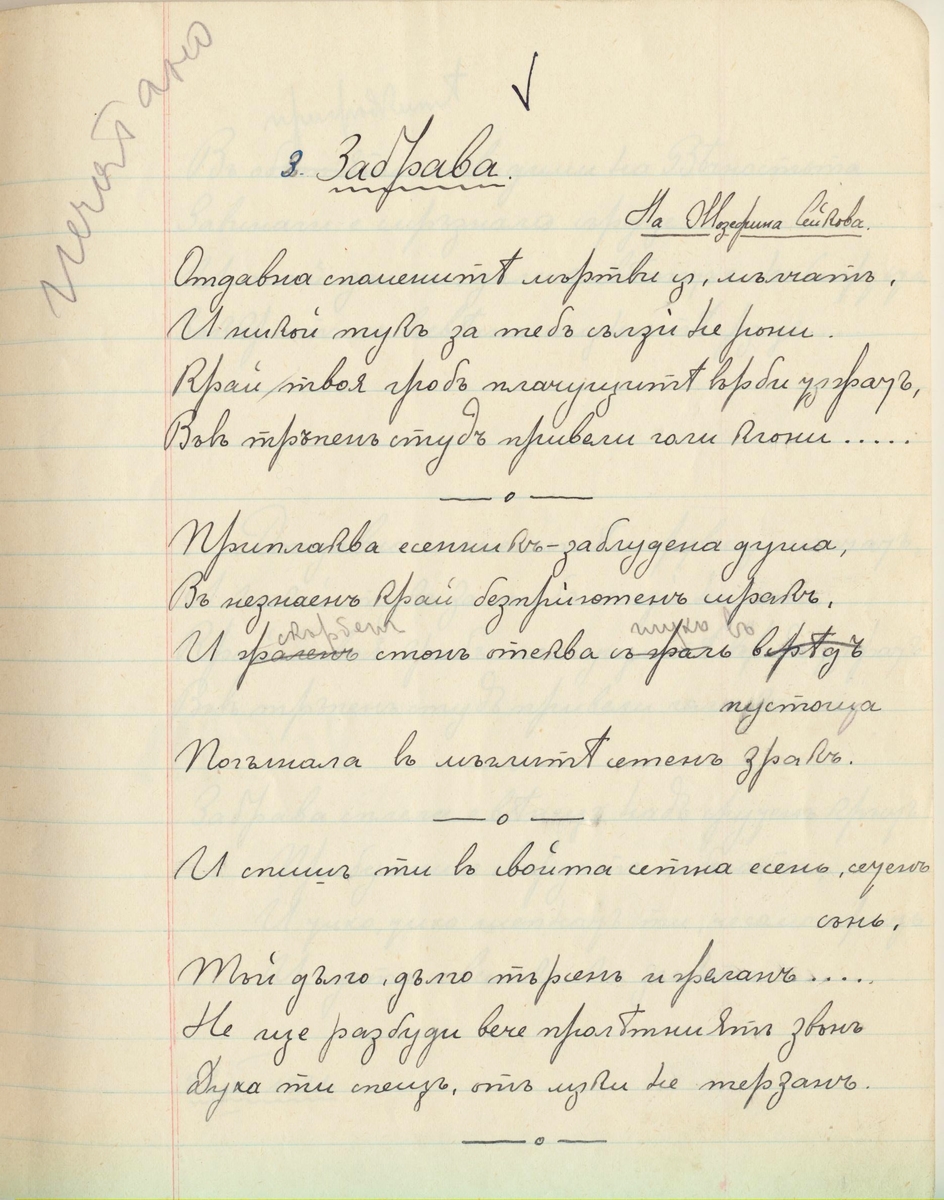 печатано
3. Забрава.
На Жозефина Сейкова.
Отдавна споменитѣ мъртви сѫ, мълчатъ,
И никой тукъ за тебъ сълзи не рони.
Край твоя гробъ плачущитѣ върби
Въвъ тръпенъ студъ привели голи клони .....
Приплаква есенникъ-заблудена душа,
Въ незнаенъ край безприютенъ мракъ,
скърбенъ тихо въ
И жаленъ стонъ отеква съ жаль врѣдъ
пустоща
Погълнала в мъглитѣ сетенъ зракъ.
И спишъ ти в свойта сетна есень, сетенъ
сънь,
Той дълго, дълго търсенъ и желанъ .....
Не ще разбуди вече пролѣтниятъ звънъ
Духа ти спещъ, отъ мѫки не терзанъ.